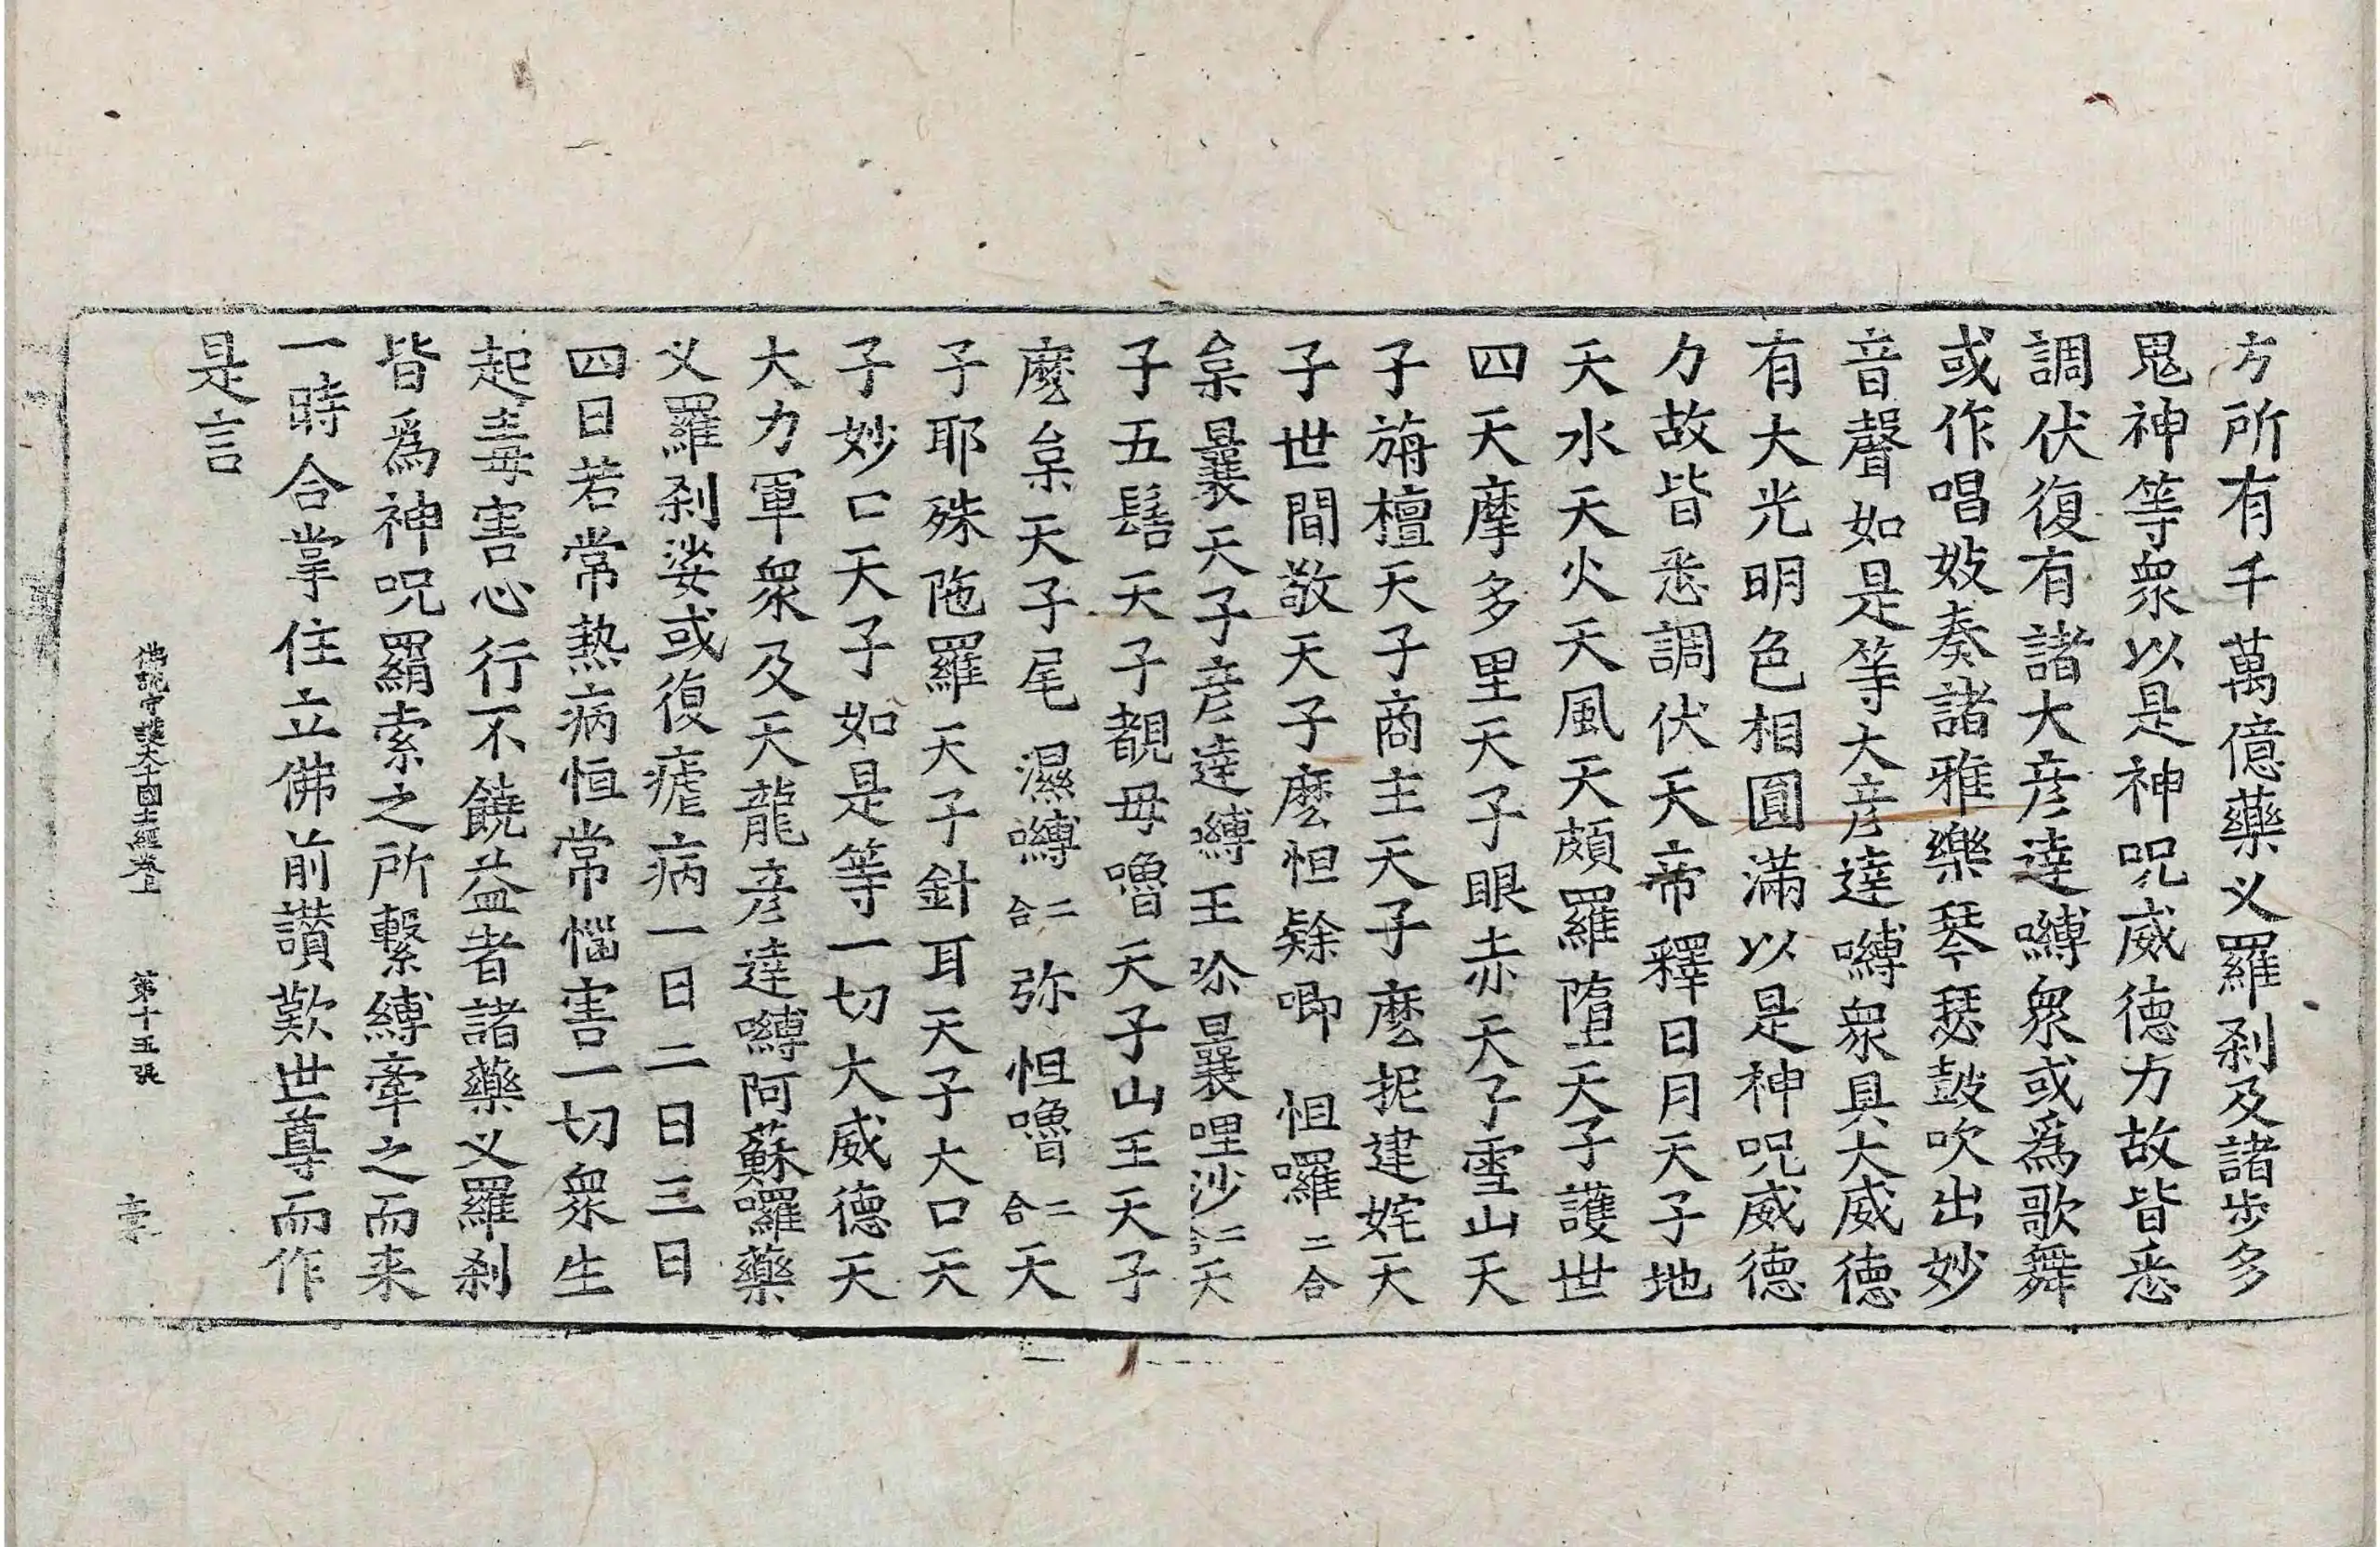 方所有千萬億藥义羅刹及諸步多
鬼神等衆以是神呪威德力故皆悉
調伏復有諸大彦達嚩衆或爲歌舞
或作唱妓奏諸雅樂琴瑟鼓吹出妙
音聲如是等大彦達嚩衆具大威德
有大光明色相圓滿以是神呪威德
力故皆悉調伏天帝釋日月天子地
天水天火天風天頗羅墮天子護世
四天摩多里天子眼赤天子雪山天
子旃檀天子商主天子麽抳建姹天
子世間敬天子麽怛𨄔唧怛囉二合
枲曩天子彦達嚩王𡛥曩哩沙二合天
子五髻天子覩毋嚕天子山王天子
麽枲天子尾濕嚩二合弥怛嚕二合天
子耶殊陁羅天子針耳天子大口天
子妙口天子如是等一切大威德天
大力軍衆及天龍彦達嚩阿蘇囉藥
义羅刹娑或復瘧病一日二日三日
四日若常熱病恒常惱害一切衆生
起毒害心行不饒益者諸藥义羅刹
皆爲神呪羂索之所繫縛牽之而来
一時合掌住立佛前讃歎世尊而作
是言
佛說守護大千國土經卷上 第十五張